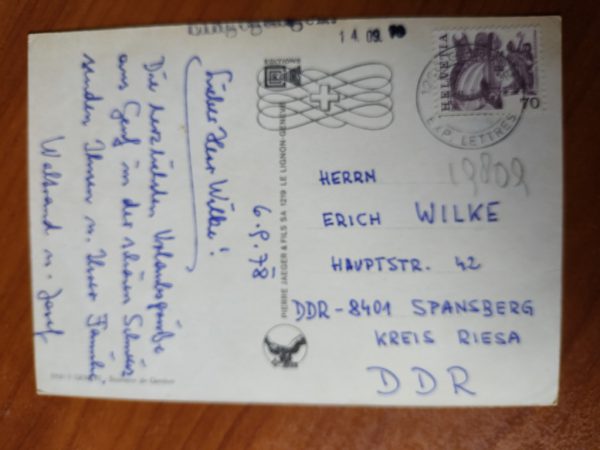 Lieber Herr Wilke!
Die herzlichsten Urlaubsgrüße
aus Genf in der schönen Schweiz
senden Ihnen u. Ihrer Familie,
Waltraud u. Josef
6.9.78
14.09.
EDITIONS
PIERRE JAEGER & FILS SA 1219 LE LIGNON-GENÈVE
HELVETIA
70
EXP. LETTRES
19802
HERRN
ERICH WILKE
HAUPTSTR. 42
DDR-8401 SPANSBERG
KREIS RIESA
DDR